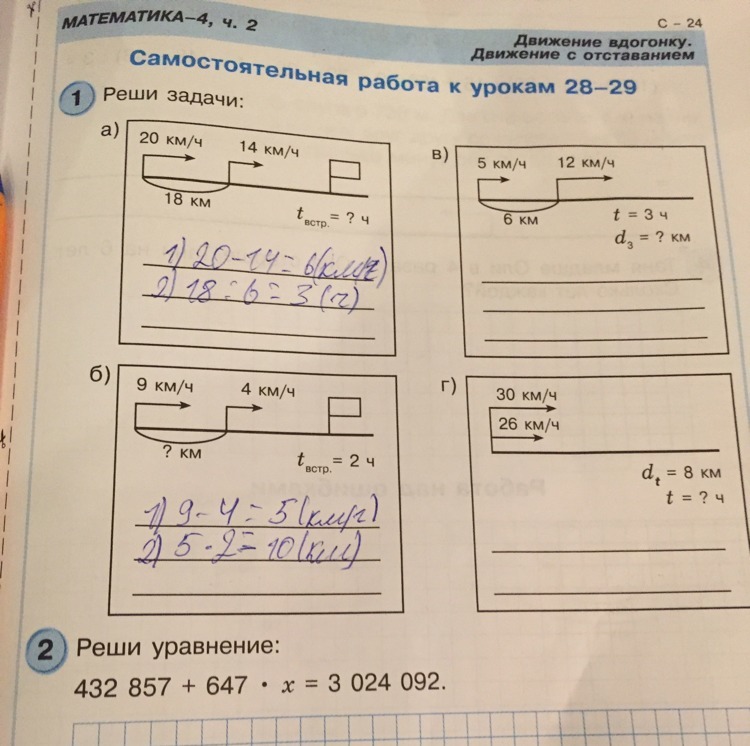 МАТЕМАТИКА–4, ч. 2
С – 24
Движение вдогонку.
Движение с отставанием
Самостоятельная работа к урокам 28–29
1 Реши задачи:
а)
20 км/ч 14 км/ч
18 км
tвстр. = ? ч
1) 20-14=6(км/ч)
2) 18:6=3(ч)
б)
9 км/ч 4 км/ч
? км
tвстр. = 2 ч
1) 9-4=5(км/ч)
2) 5·2=10(км)
в)
5 км/ч 12 км/ч
6 км
t = 3 ч
d3 = ? км
г)
30 км/ч
26 км/ч
dt = 8 км
t = ? ч
2 Реши уравнение:
432 857 + 647 · x = 3 024 092.